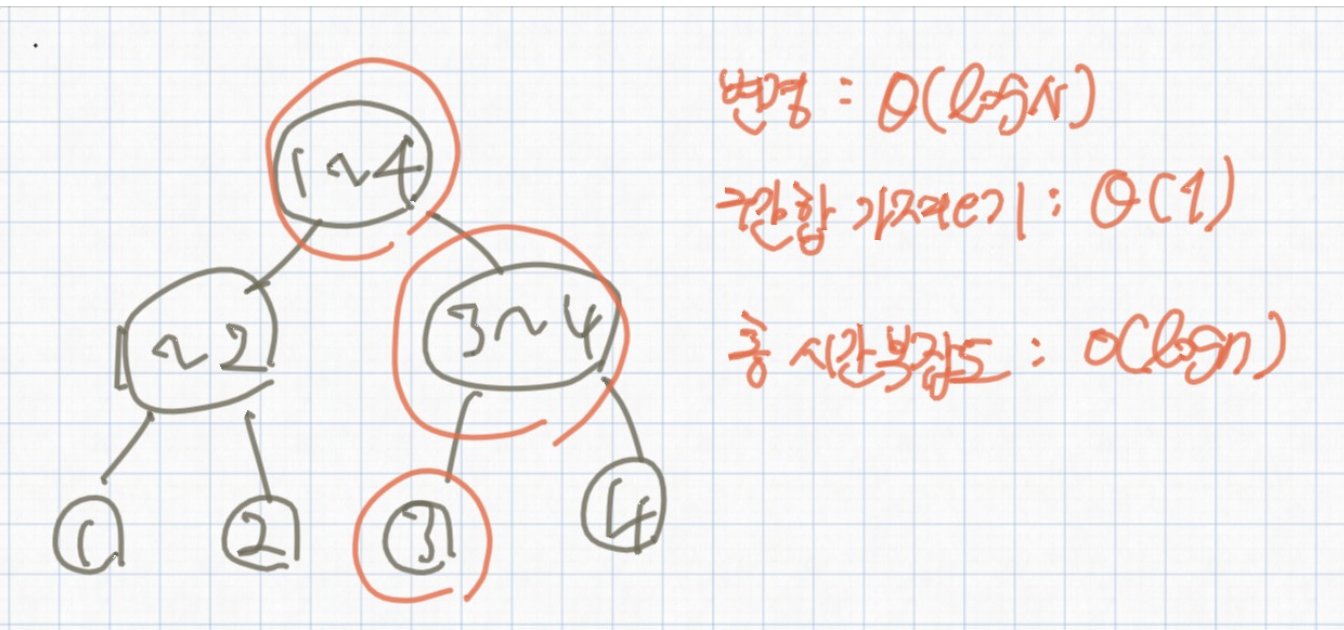 1~4
1~2
3~4
1
2
3
4
변경 : O(logN)
구간합 가져오기 : O(1)
총 시간복잡도 : O(logn)